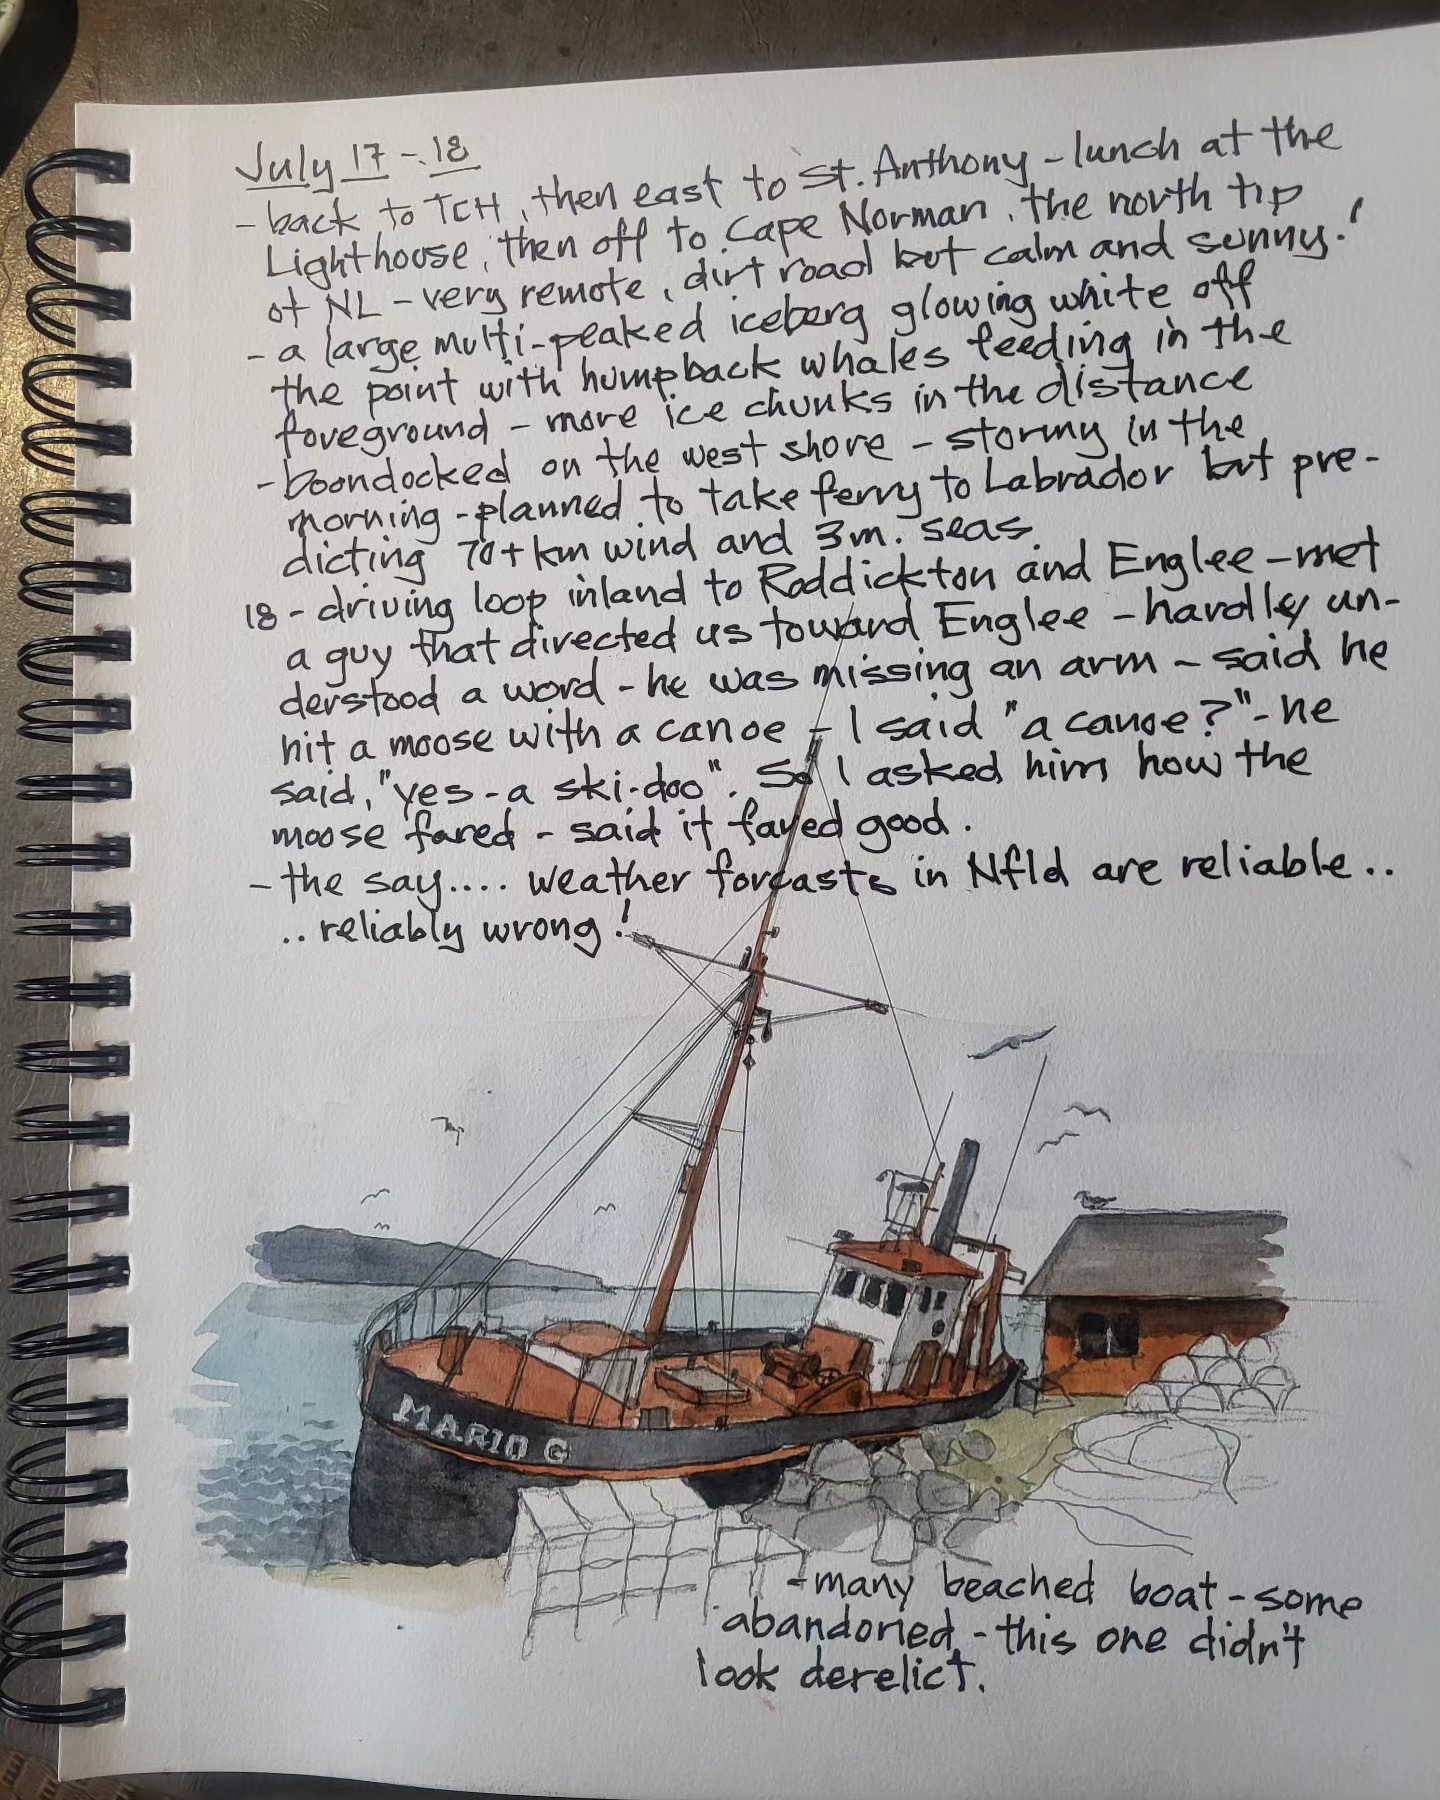 July 17-18
- back to TCH, then east to St. Anthony - lunch at the
Lighthouse, then off to Cape Norman, the north tip
of NL - very remote, dirt road but calm and sunny.
- a large multi-peaked iceberg glowing white off
the point with humpback whales feeding in the
foreground - more ice chunks in the distance
- boondocked on the west shore - stormy in the
morning - planned to take ferry to Labrador but pre-
dicting 70+ km wind and 3m. seas.
18 - driving loop inland to Roddickton and Englee - met
a guy that directed us toward Englee - hardly un-
derstood a word - he was missing an arm - said he
hit a moose with a canoe - I said "a canoe?" - he
said, "yes - a ski-doo". So I asked him how the
moose fared - said it fared good.
- the say.... weather forcasts in Nfld are reliable..
.. reliably wrong!
MARIO G
- many beached boat - some
abandoned - this one didn't
look derelict.